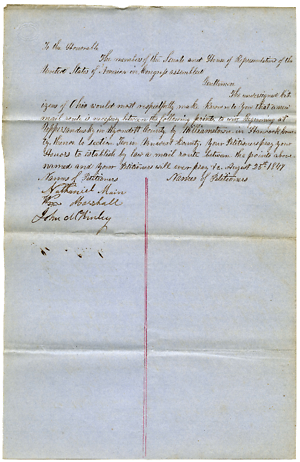 To the Honorable
The members of the Senate and House of Representatives of the
United States of America in Congress assembled
Gentlemen
The undersigned cit
izens of Ohio would most respectfully make known to you that a new
mail route is necessary between the following points to wit Beginning at
Upper Sandusky in Wyandott County by Williamstown in
by to Your Petitioners pray your
Honors to establish by law a mail route between the points above
named and your Petitioners will ever pray &c August 28th 1847
Names of Petitioners Names of Petitioners
Nathaniel Main
Wm Marshall
John McKinley